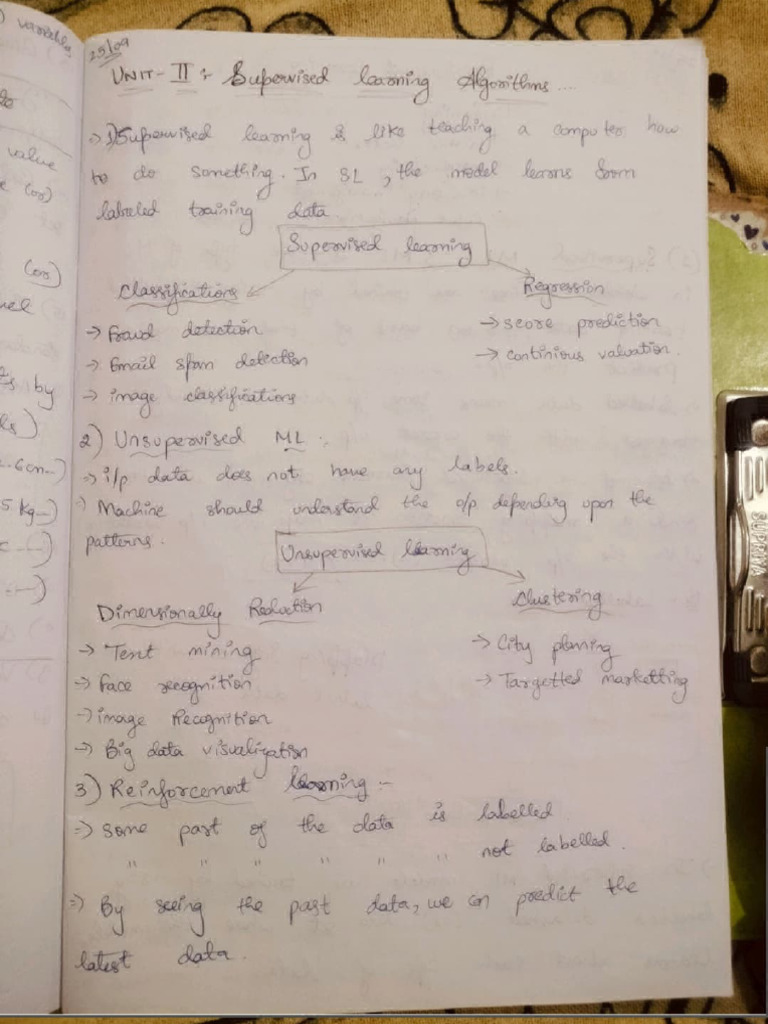 25/09
UNIT-II :- Supervised learning Algorithms ....
→ 1) Supervised learning is like teaching a computer how
to do something. In SL, the model learns from
labeled training data
Supervised learning
Classifications
Regression
→ Fraud detection
→ score prediction
→ Email spam detection
→ continious valuation.
→ image classifications
2) Unsupervised ML :-
→ i/p data does not have any labels.
→ Machine should understand the o/p depending upon the
patterns.
Unsupervised learning
Dimensionally Reduction
Clustering
→ Text mining
→ City planning
→ Face recognition
→ Targetted marketting
→ image Recognition
→ Big data visualization
3) Reinforcement learning :-
→ Some part of the data is labelled
" " " " " " not labelled.
→ By seeing the past data, we can predict the
latest data.
variable,
value
(or)
(or)
by
5 kg--)
SUPRIYA